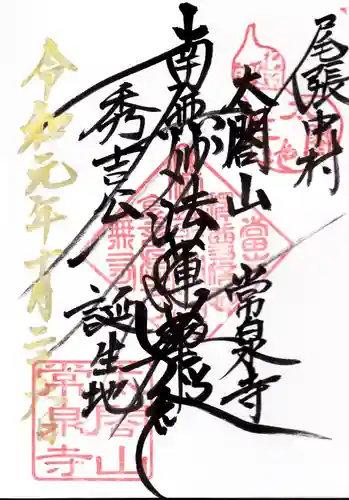 尾張中村
太閤山
常泉寺
南無妙法蓮華経
秀吉公
誕生地
令和元年十月二
太閤山
常泉寺